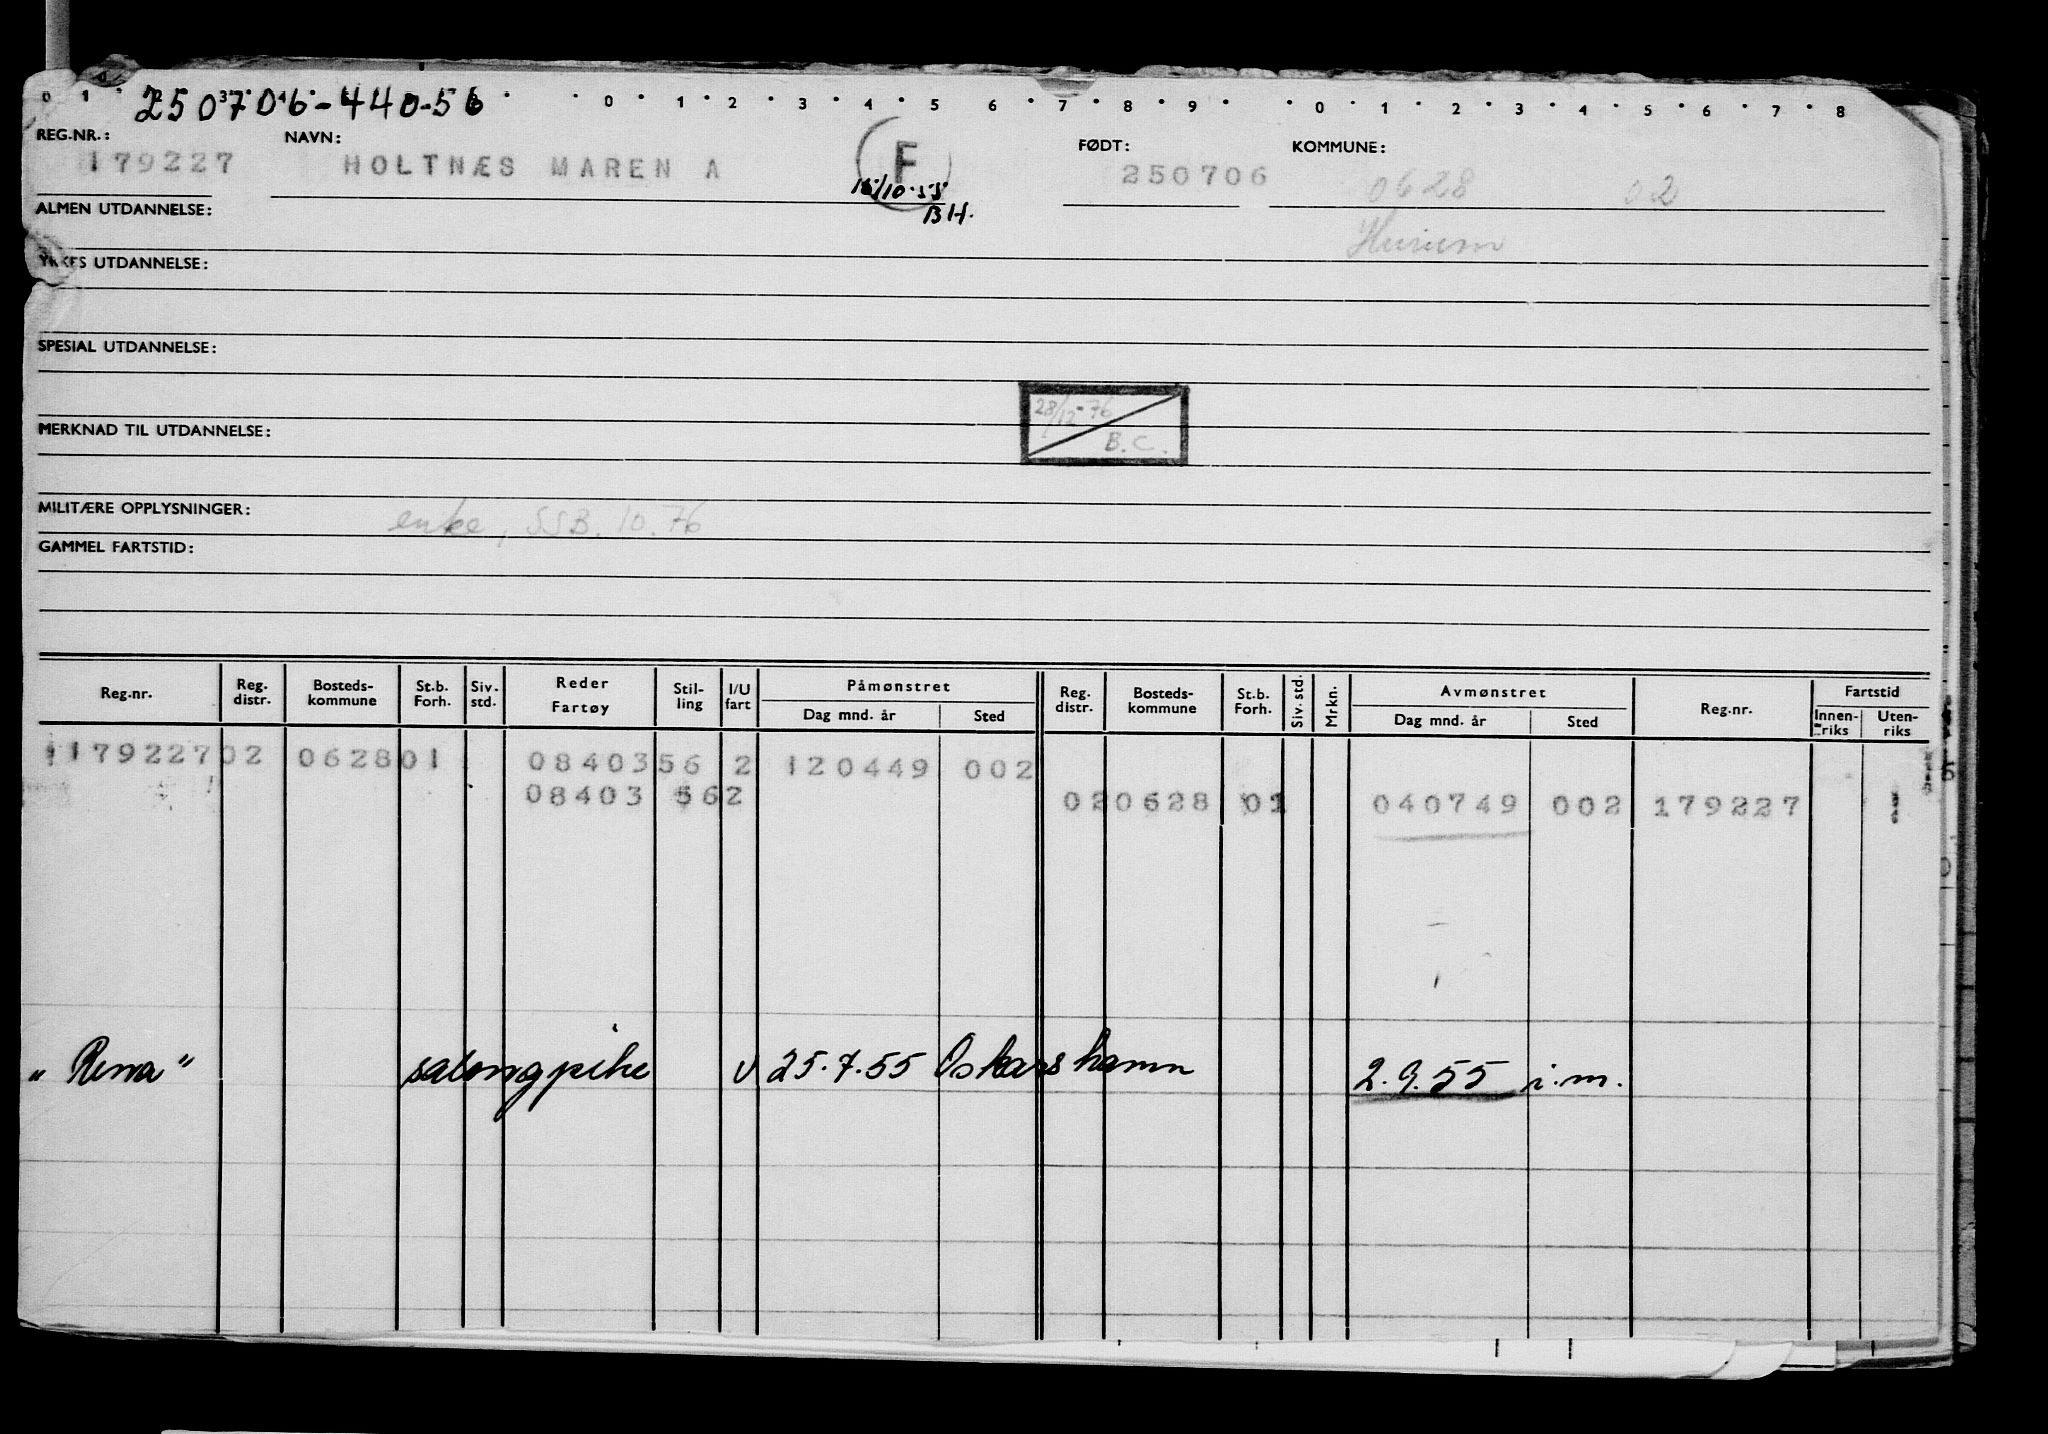 250706-440-56
0 1 0 1 2 3 4 5 6 7 8 9 0 1 2 3 4 5 6 7 8
REG.NR.: NAVN: FØDT: KOMMUNE:
179227 HOLTNÆS MAREN A F 250706 0628 02
15/10-55
BH.
ALMEN UTDANNELSE:
Hurum
YRKES UTDANNELSE:
SPESIAL UTDANNELSE:
28/12-76
B.C.
MERKNAD TIL UTDANNELSE:
MILITÆRE OPPLYSNINGER: enke, SSB. 10.76
GAMMEL FARTSTID:
Reg.nr. Reg. distr. Bosteds-kommune St.b. Forh. Siv. std. Reder Fartøy Stil-ling I/U fart Påmønstret Dag mnd. år Sted Reg. distr. Bosteds-kommune St.b. Forh. Siv. std. Mrkn. Avmønstret Dag mnd. år Sted Reg.nr. Fartstid Innen-riks Uten-riks
179227 02 0628 01 08403 56 2 120449 002
08403 56 2 02 0628 01 040749 002 179227
"Rena" salongpike U 25.7.55 Oskarshamn 2.9.55 i.m.